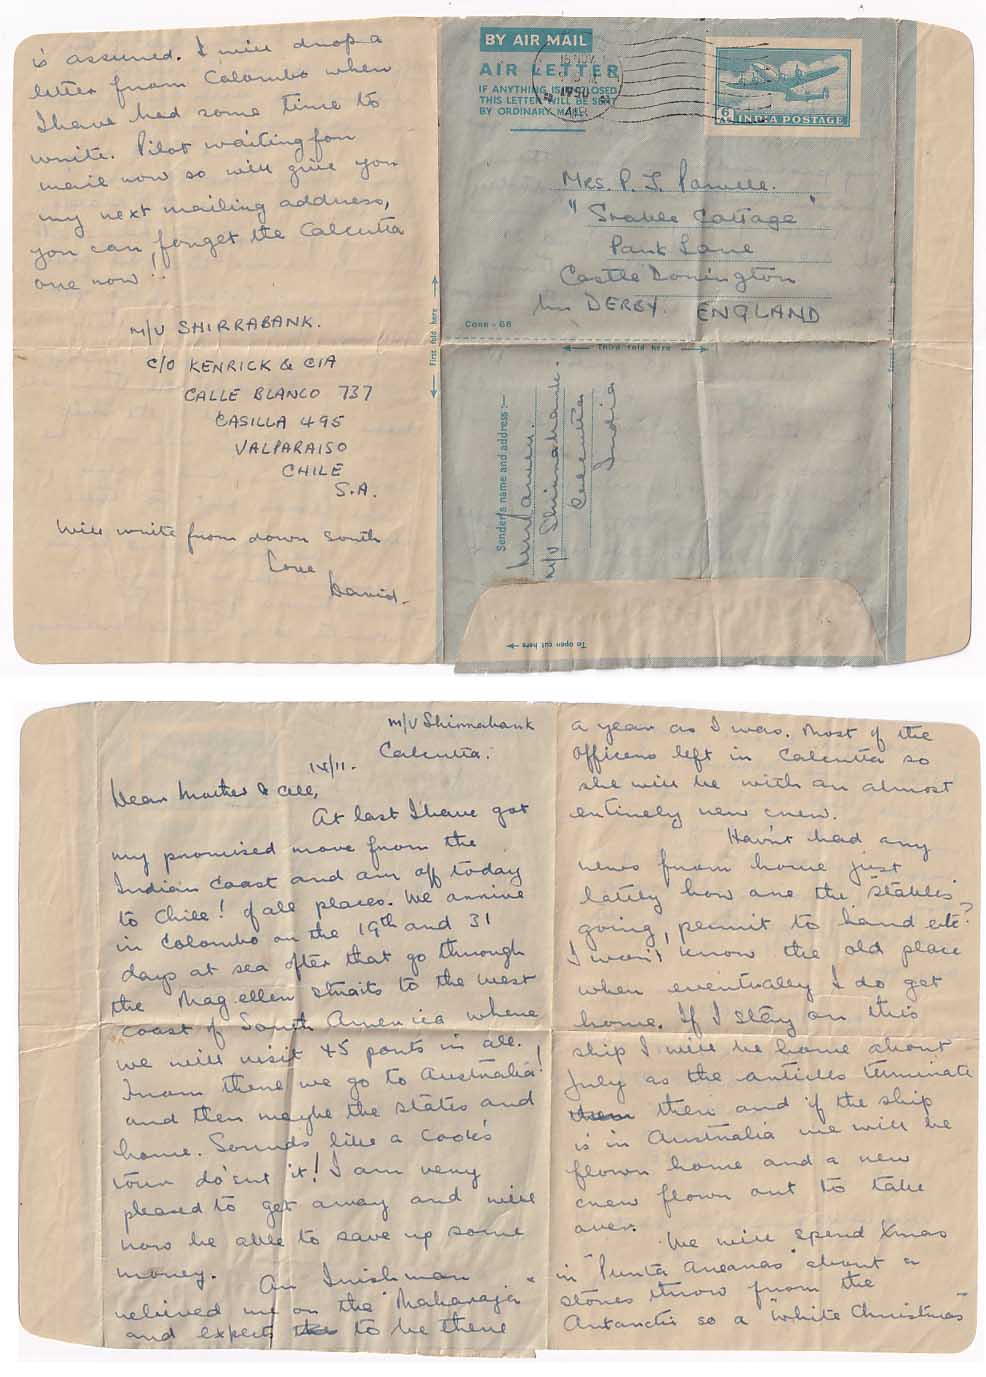 is assumed. I will drop a
letter from Colombo when
I have had some time to
write. Pilot waiting for
mail now so will give you
my next mailing address,
you can forget the Calcutta
one now!
M/V SHIRRABANK.
C/O KENRICK & CIA
CALLE BLANCO 737
CASILLA 495
VALPARAISO
CHILE
S.A.
Will write from down South
Love
David.
BY AIR MAIL
AIR LETTER
IF ANYTHING IS ENCLOSED
THIS LETTER WILL BE SENT
BY ORDINARY MAIL
1950
6 AS. INDIA POSTAGE
Mrs. P. J.
"Stable Cottage"
Park Lane
Castle Donington
Nr DERBY. ENGLAND
Conn-66
First fold here
Third fold here
Sender's name and address:—
M/V Shirrabank.
Calcutta
India
To open cut here
M/V Shirrabank
Calcutta.
Dear Mother & all,
At last I have got
my promised move from the
Indian Coast and am off today
to Chile! of all places. We arrive
in Colombo on the 19th and 31
days at sea after that go through
the Magellen Straits to the west
coast of South America where
we will visit 45 ports in all.
From there we go to Australia!
and then maybe the States and
home. Sounds like a Cook's
tour do'snt it! I am very
pleased to get away and will
now be able to save up some
money.
An Irishman
relieved me on the "Maharaja"
and expects to be there
a year as I was. Most of the
Officers left in Calcutta so
she will be with an almost
entirely new crew.
Hav'nt had any
news from home just
lately how are the "Stables"
going, permit to hand etc?
I won't know the old place
when eventually I do get
home. If I stay on this
ship I will be home about
July as the articles terminate
then and if the ship
is in Australia we will be
flown home and a new
crew flown out to take
over.
We will spend Xmas
in "Punta Arenas" about a
stones throw from the
Antarctic so a "White Christmas"